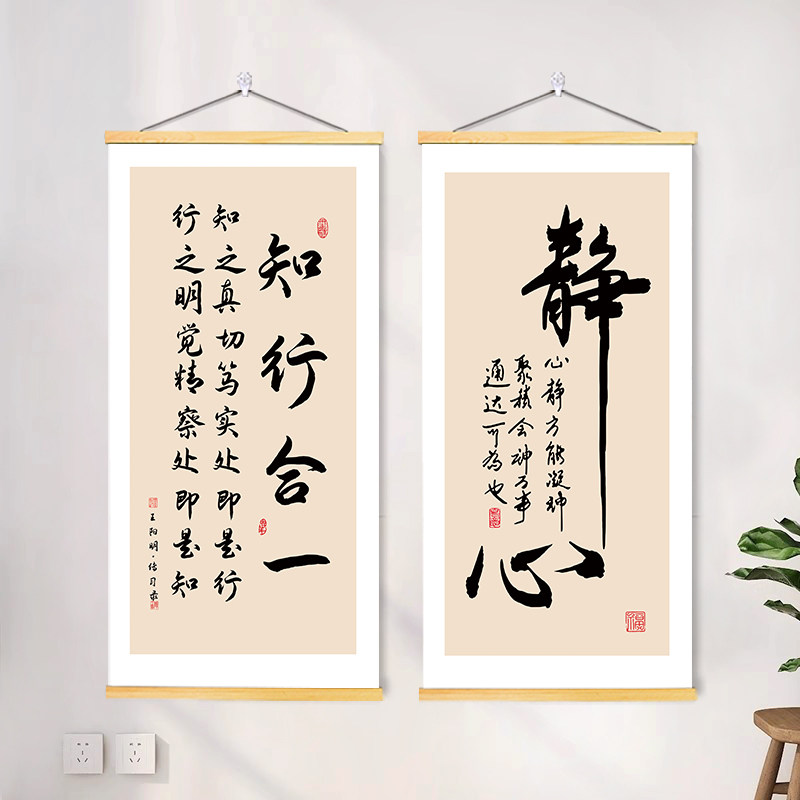 知行合一
知之真切笃实处即是行
行之明觉精察处即是知
王阳明·传习录
静心
心静方能凝神
聚精会神万事
通达可为也